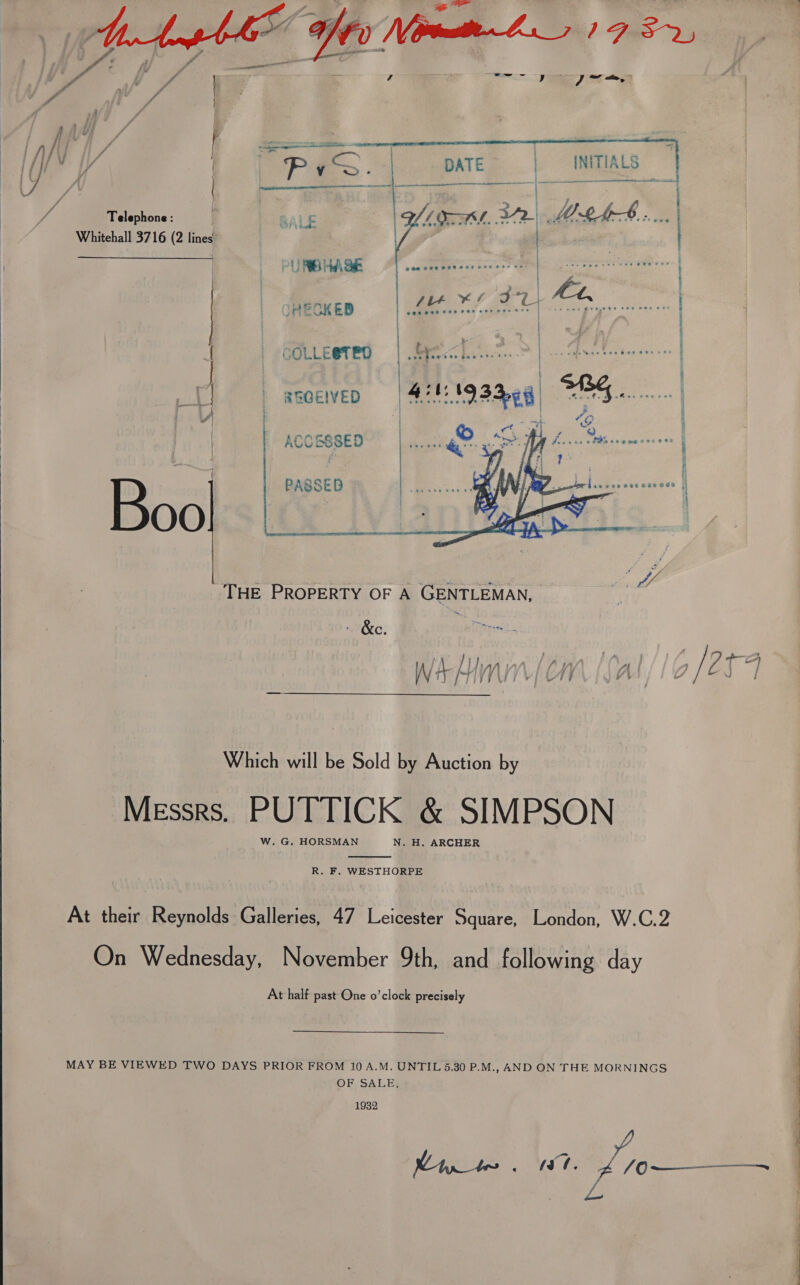 November 1932
P & S. DATE INITIALS
Telephone :
Whitehall 3716 (2 lines
SALE
PURCHASE
CHECKED
COLLECTED
RECEIVED 4:1:1933
ACCESSED
PASSED
Bool
THE PROPERTY OF A GENTLEMAN,
&c.
Which will be Sold by Auction by
MESSRS. PUTTICK & SIMPSON
W. G. HORSMAN N. H. ARCHER
R. F. WESTHORPE
At their Reynolds Galleries, 47 Leicester Square, London, W.C.2
On Wednesday, November 9th, and following day
At half past One o'clock precisely
MAY BE VIEWED TWO DAYS PRIOR FROM 10 A.M. UNTIL 5.30 P.M., AND ON THE MORNINGS
OF SALE,
1932